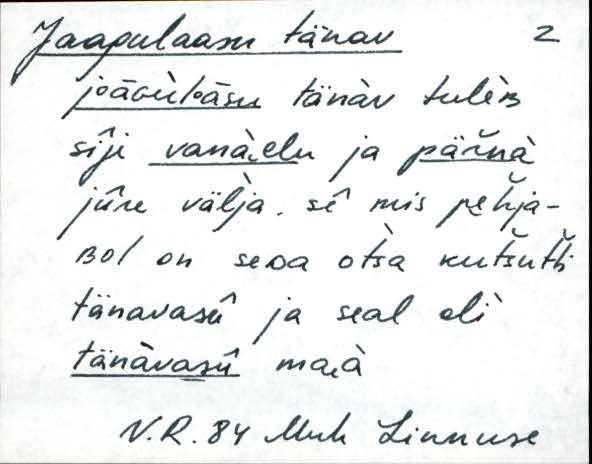 Jaagulaasu tänav 2
joāgùlāsu tänàv tulèB
sîji vanà.elu ja pärnà
jûre välja. sê mis pehja-
Bol on seDa otsa kutsuti
tänavasû ja seal oli
tänàvasû maià
V.R. 84 Muh Linnuse